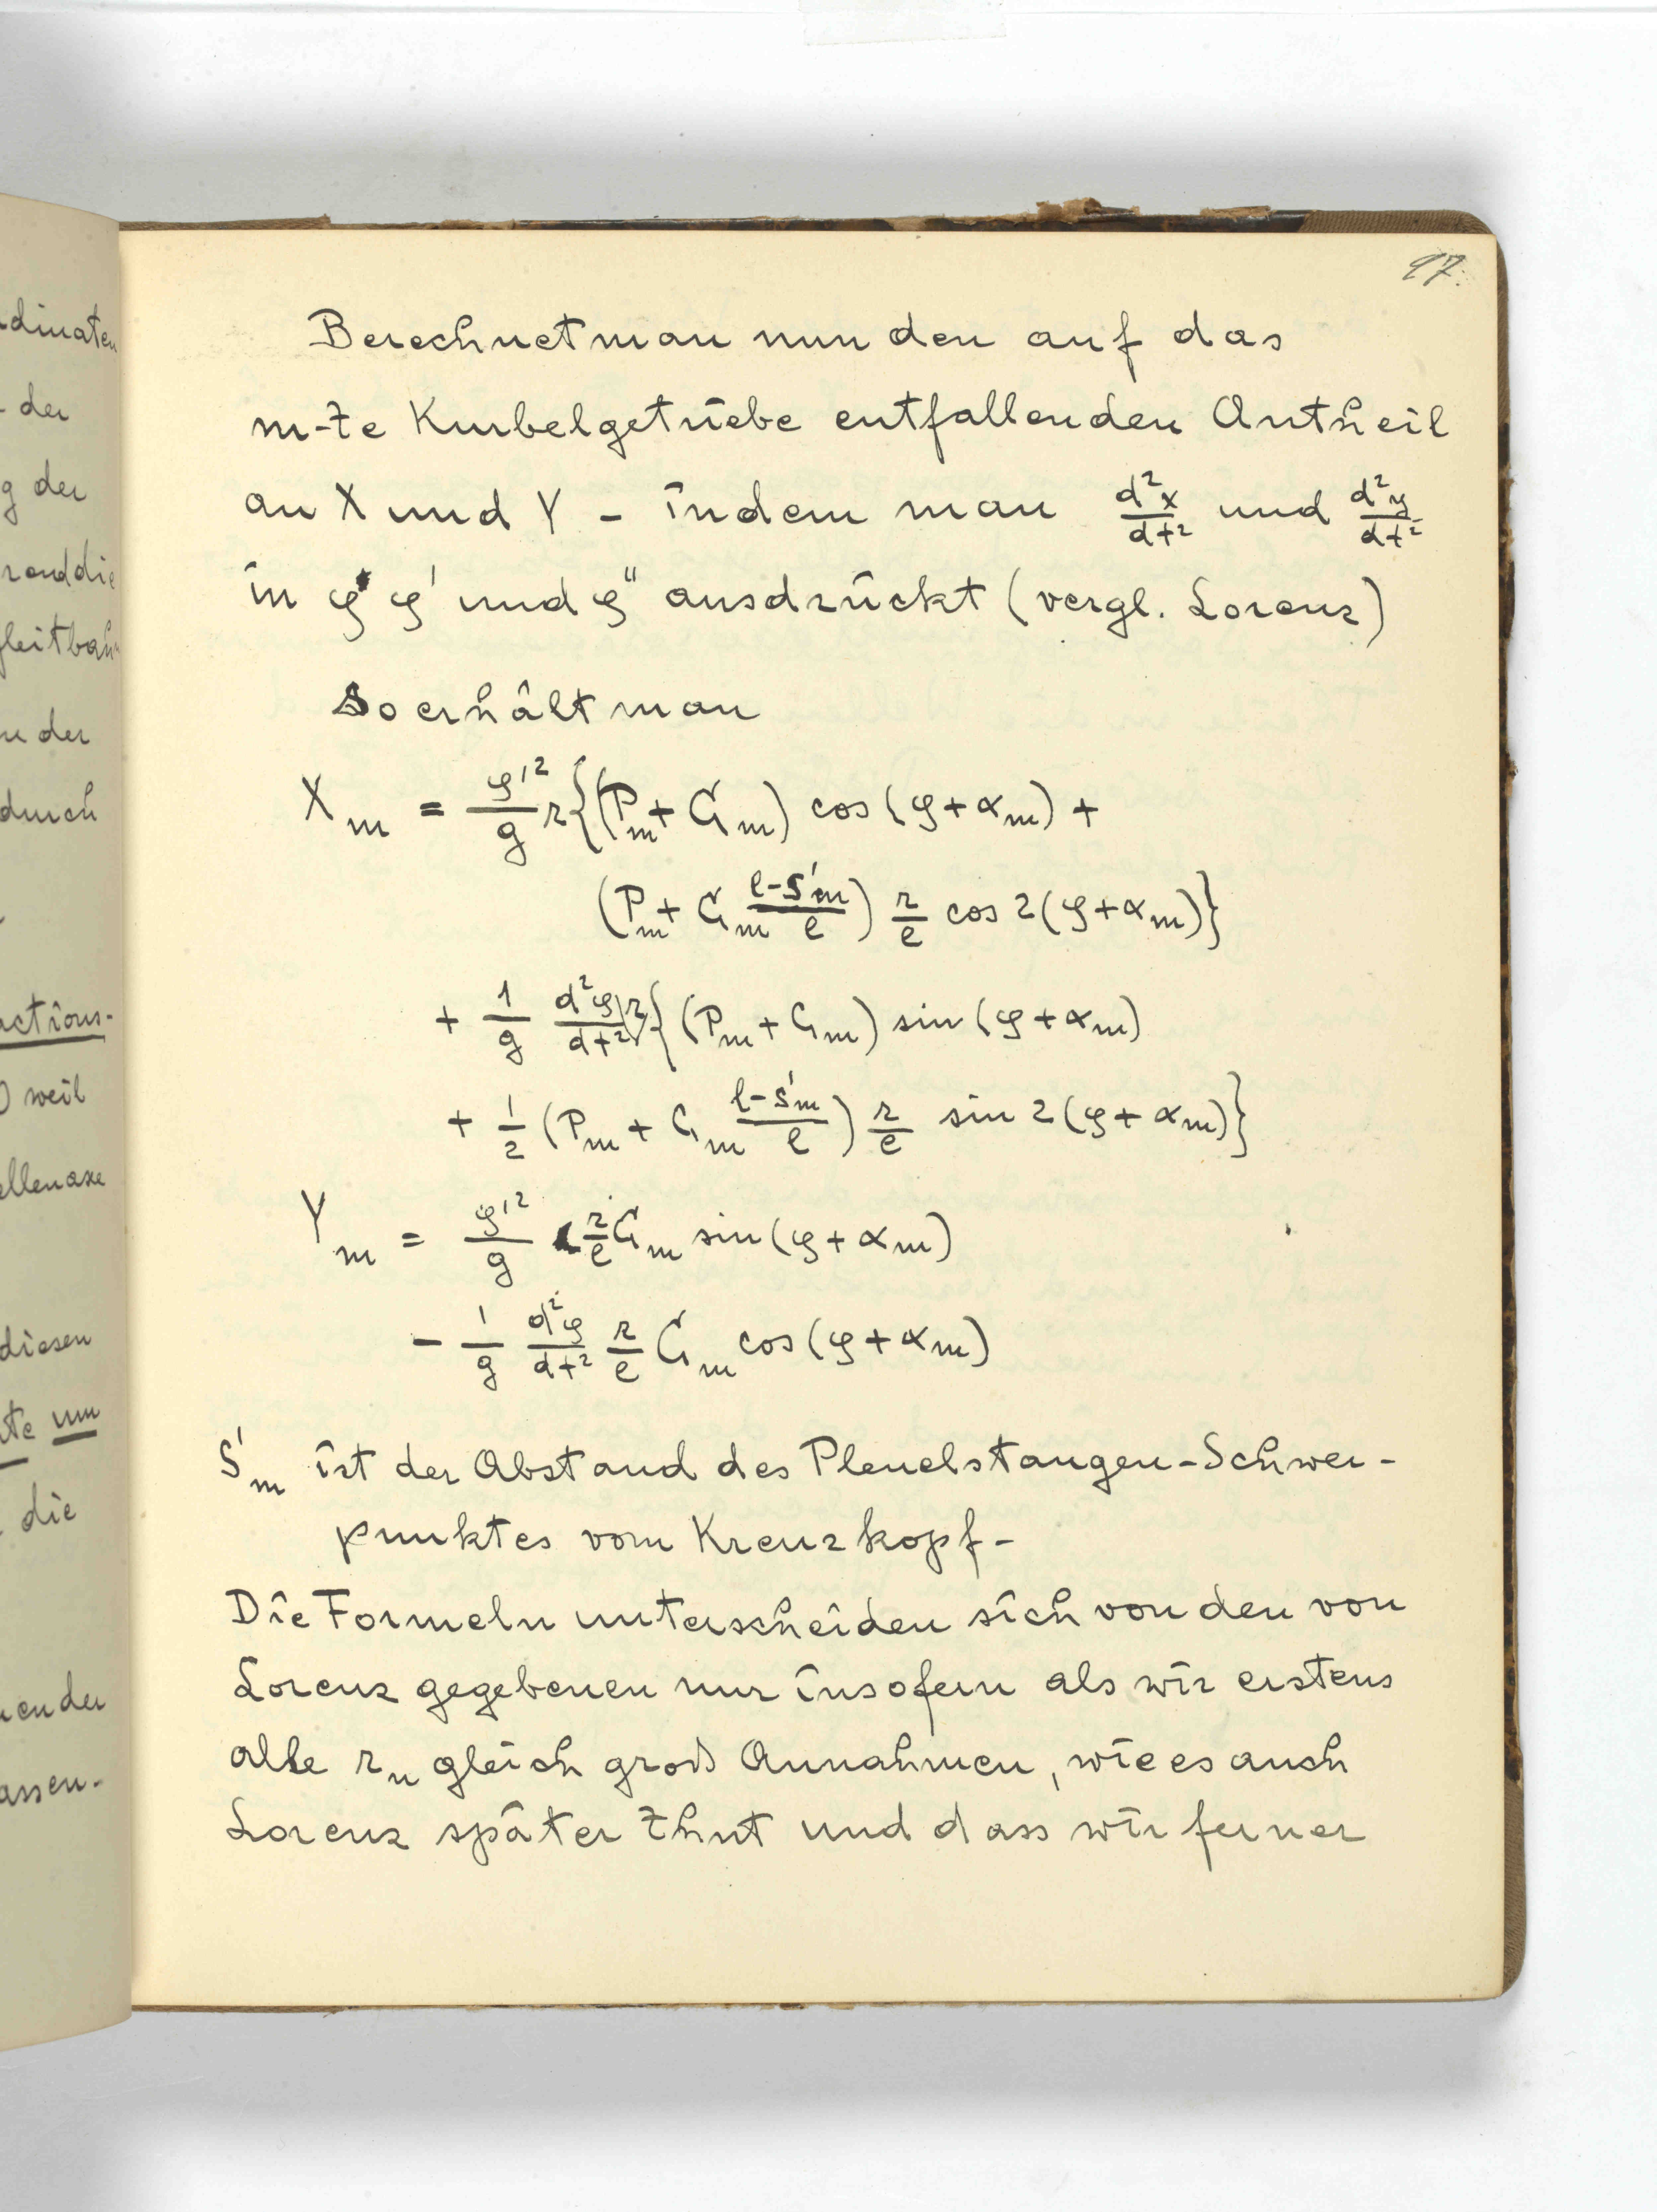 dinaten
- der
g der
rand die
gleitbahn
der
durch
actions-
) weil
ellenaxe
diesen
te um
die
en der
assen-
97.
Berechnet man nun den auf das
m-te Kurbelgetriebe entfallenden Antheil
an X und Y - indem man d²x/dt² und d²y/dt²
in φ φ' und φ'' ausdrückt (vergl. Lorenz)
So erhält man
X_m = φ'²/g r{(P_m + G_m) cos (φ + α_m) +
(P_m + G_m (l-s'_m)/l) r/l cos 2(φ + α_m)}
+ 1/g d²φ/dt² r{(P_m + G_m) sin (φ + α_m)
+ 1/2 (P_m + G_m (l-s'_m)/l) r/l sin 2(φ + α_m)}
Y_m = φ'²/g r/l G_m sin (φ + α_m)
- 1/g d²φ/dt² r/l G_m cos (φ + α_m)
S'_m ist der Abstand des Pleuelstangen-Schwer-
punktes vom Kreuzkopf-
Die Formeln unterscheiden sich von den von
Lorenz gegebenen nur insofern als wir erstens
alle r_n gleich groß Annahmen, wie es auch
Lorenz später thut und dass wir ferner